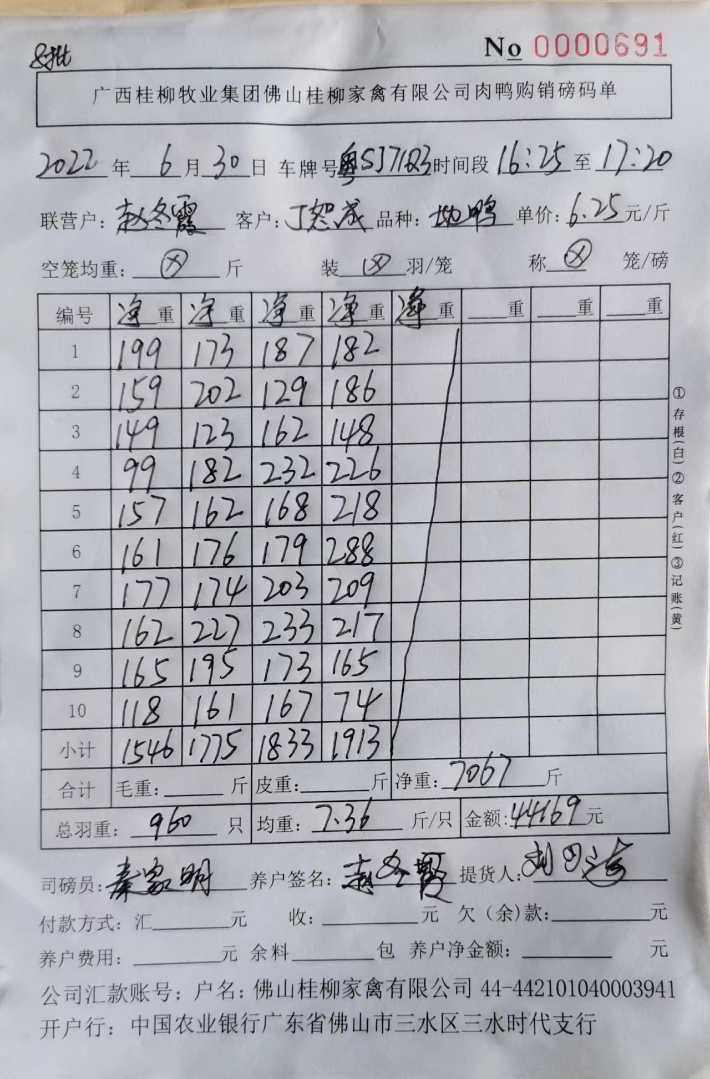 8批
No 0000691
广西桂柳牧业集团佛山桂柳家禽有限公司肉鸭购销磅码单
2022 年 6 月 30 日 车牌号 粤SJ7183 时间段 16:25 至 17:20
联营户: 赵冬霞 客户: 丁恕成 品种: 坳鸭 单价: 6.25 元/斤
空笼均重: 斤 装 羽/笼 称 笼/磅
编号 净重 净重 净重 净重 净重 重 重 重
1 199 173 187 182
2 159 202 129 186
3 149 123 162 148
4 99 182 232 226
5 157 162 168 218
6 161 176 179 288
7 177 174 203 209
8 162 227 233 217
9 165 195 173 165
10 118 161 167 74
小计 1546 1775 1833 1913
合计 毛重: 斤 皮重: 斤 净重: 7067 斤
总羽重: 960 只 均重: 7.36 斤/只 金额: 44169 元
司磅员: 秦家明 养户签名: 赵冬霞 提货人:
付款方式: 汇 元 收: 元 欠(余)款: 元
养户费用: 元 余料 包 养户净金额: 元
公司汇款账号; 户名: 佛山桂柳家禽有限公司 44-442101040003941
开户行: 中国农业银行广东省佛山市三水区三水时代支行
①存根(白)②客户(红)③记账(黄)